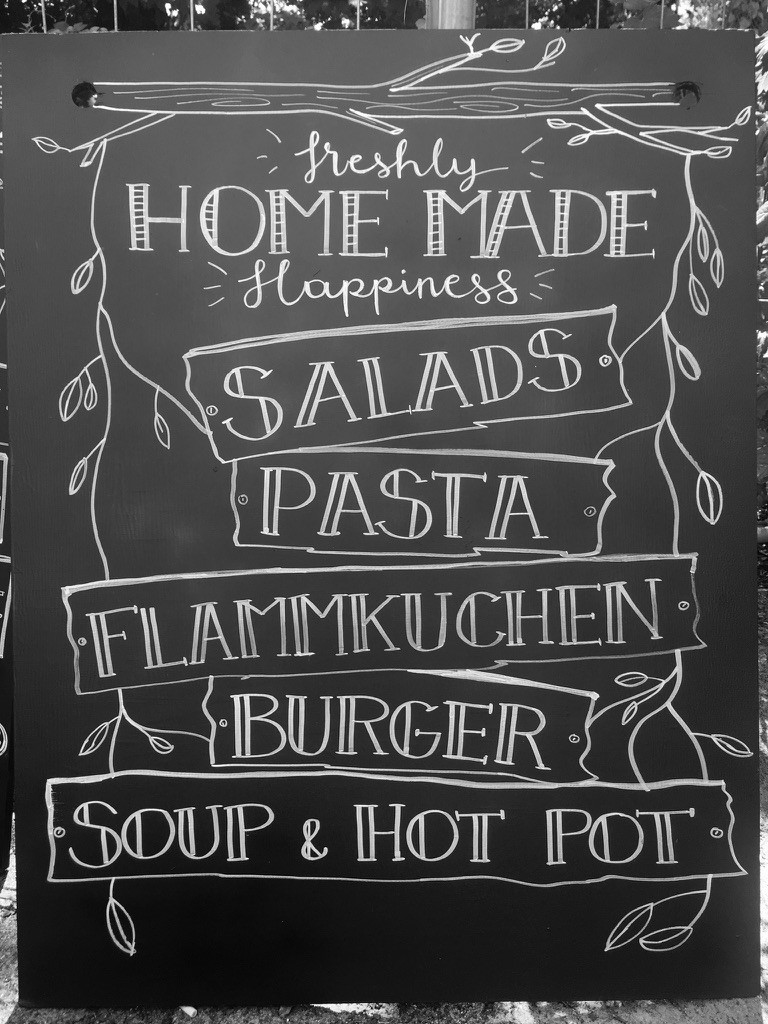 freshly
HOME MADE
Happiness
SALADS
PASTA
FLAMMKUCHEN
BURGER
SOUP & HOT POT